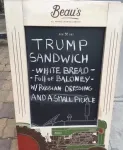 Beau's
TRUMP
SANDWICH
-WHITE BREAD-
-Full of BALONEY-
W/ RUSSIAN DRESSING
AND A SMALL PICKLE